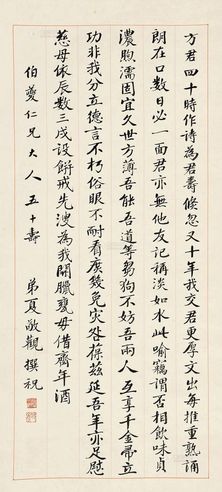 方君四十時作詩為君壽倏忽又十年我交君更厚文出每推重熟誦
朗在口數日必一面君亦無他友記稱淡如水此喻竊謂否相飲味貞
濃朐濡固宜久世方薄吾能吾道等芻狗不妨吾兩人互享千金帚立
功非我分立德言不朽俗眼不耐看廣幾免災咎葆茲延吾年亦足慰
慈母依辰數三戌設餅戒先溲為我開臘甕毋借齊年酒
伯夔仁兄大人五十壽
弟夏敬觀撰祝